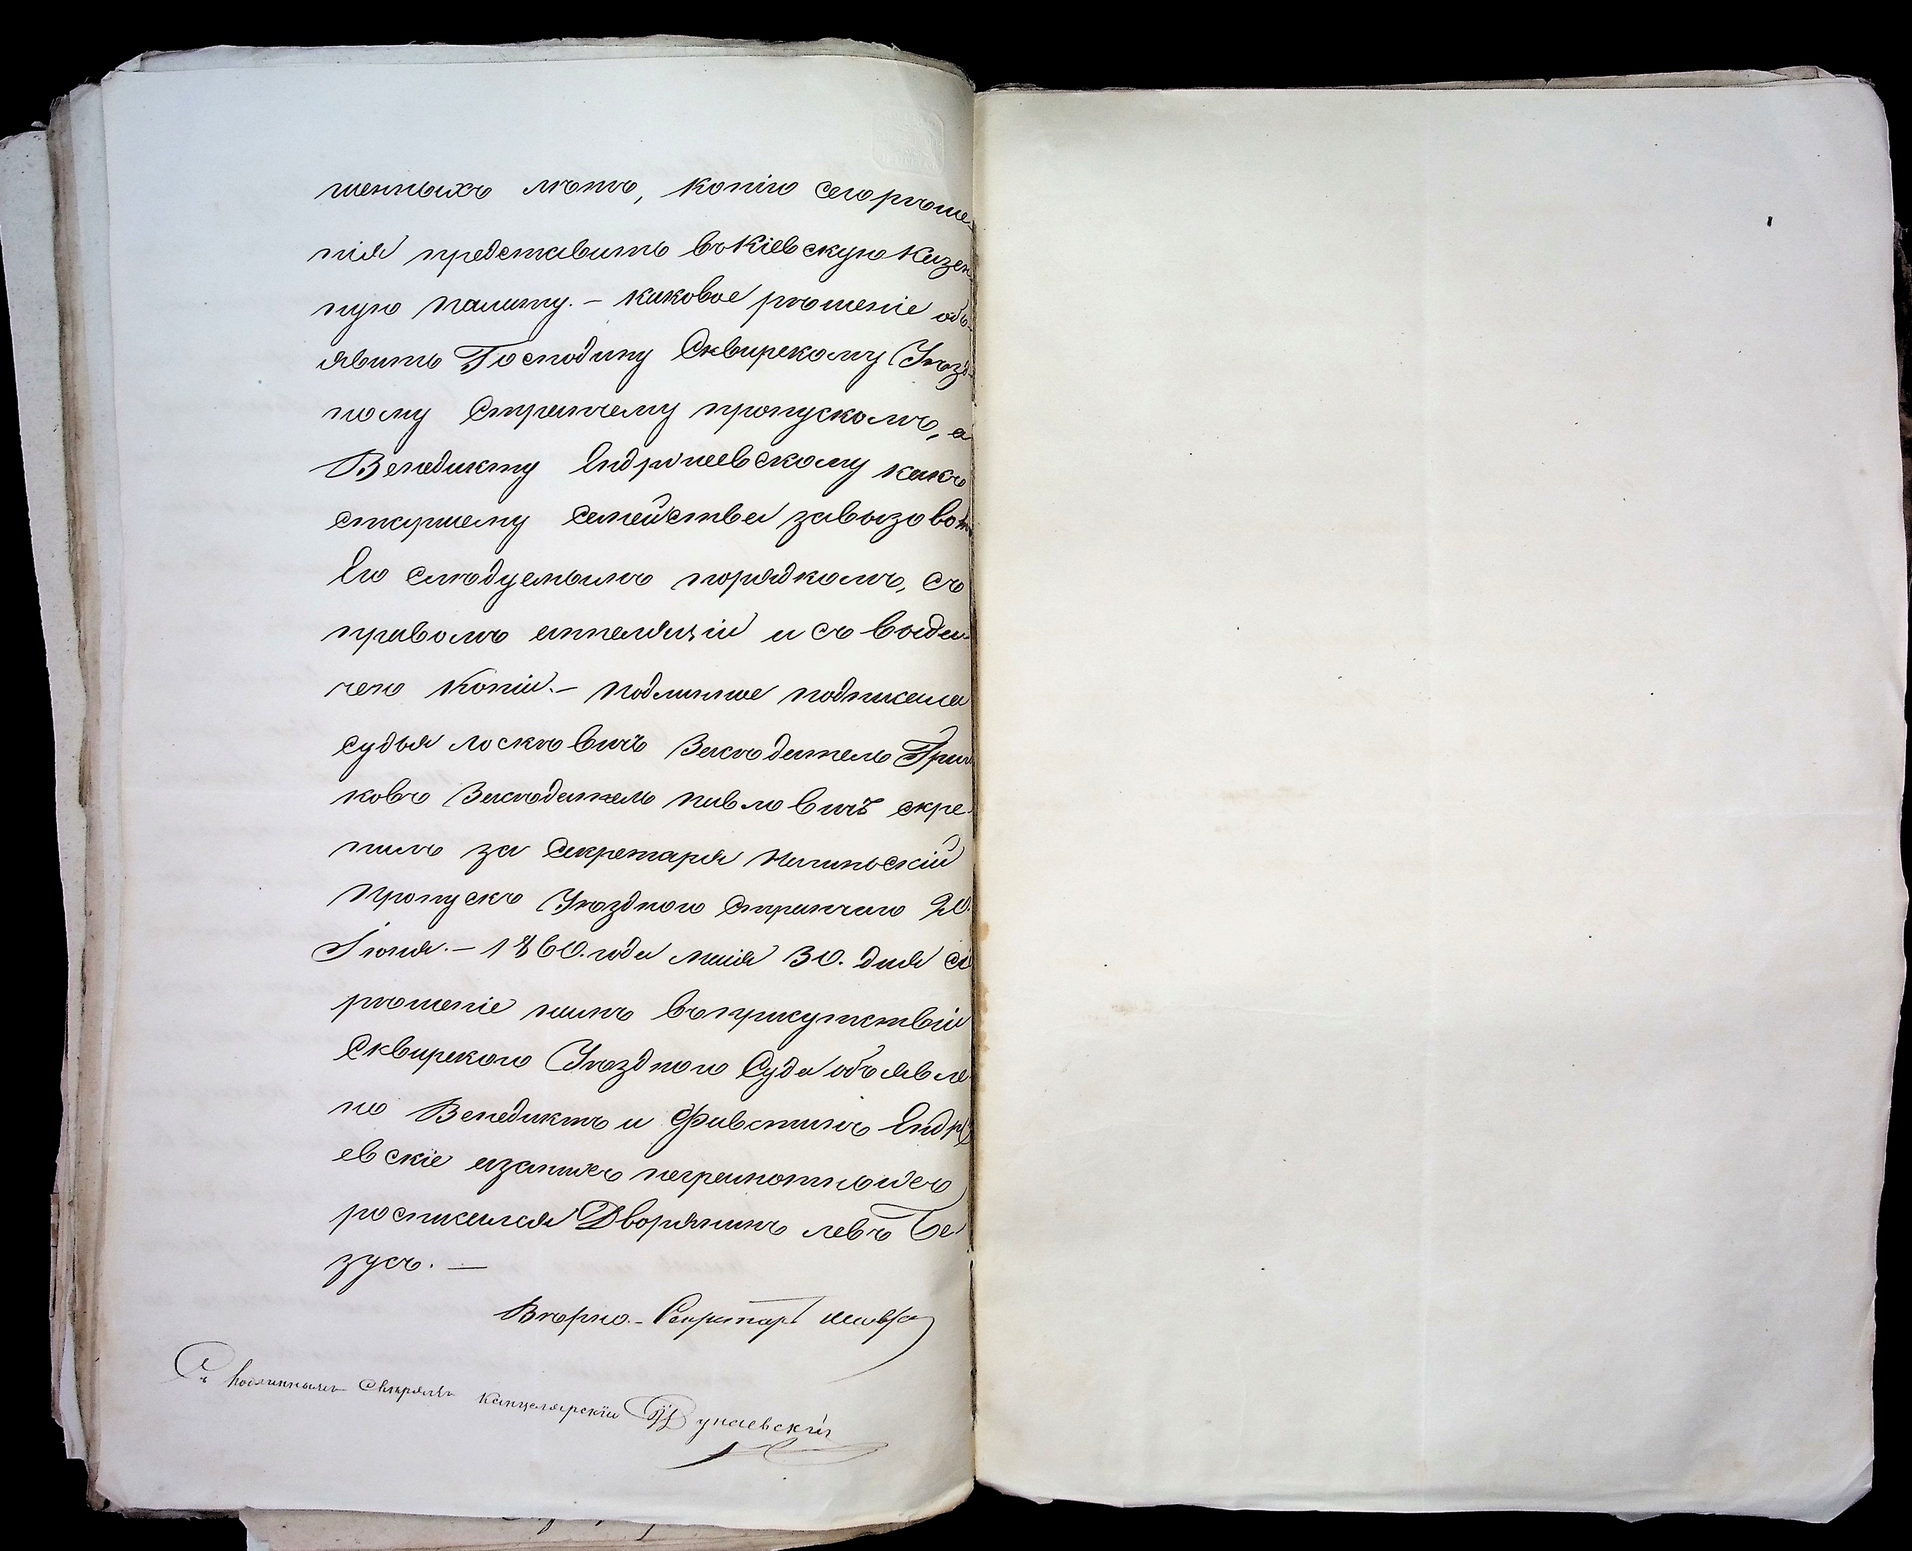 шенныхъ лѣтъ, копію сего рѣше-
нія представить въ Кіевскую Казен-
ную палату. – каковое рѣшеніе объ-
явить Господину Сквирскому Уѣзд-
ному Стряпчему пропускомъ, а
Венедикту Ендріиевскому какъ
старшему семейства за вызовомъ
Его слѣдуемымъ порядкомъ, съ
правомъ аппеляціи и съ выда-
чею копіи. – подлинное подписали
судья Лоскѣвичъ Засѣдатель
ковъ Засѣдатель Павловичъ скрѣ
пилъ за Секретаря
пропускъ Уѣзднаго Стряпчаго 20.
Іюня. – 1860. года маія 30. дня сіе
рѣшеніе намъ въ присутствіи
Сквирскаго Уѣзднаго Суда объявле
но Венедиктъ и Фавстинъ Ендрі
евскіе а за нихъ неграмотныхъ
росписался Дворянинъ Левъ Бе
зусъ. –
Вѣрно. – Секретарь
Съ подлиннымъ свѣрялъ Канцелярскій Дунаевскій